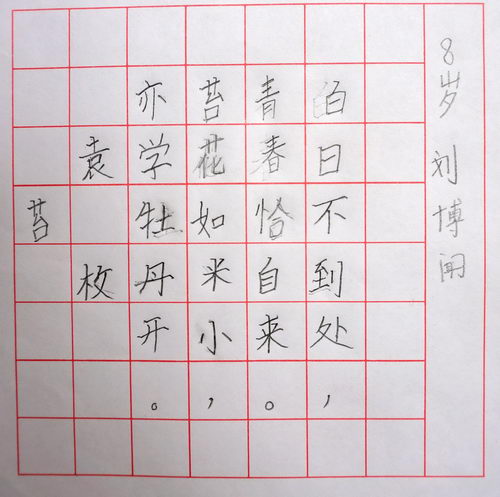 8岁 刘博闻
白日不到处，
青春恰自来。
苔花如米小，
亦学牡丹开。
袁枚
苔